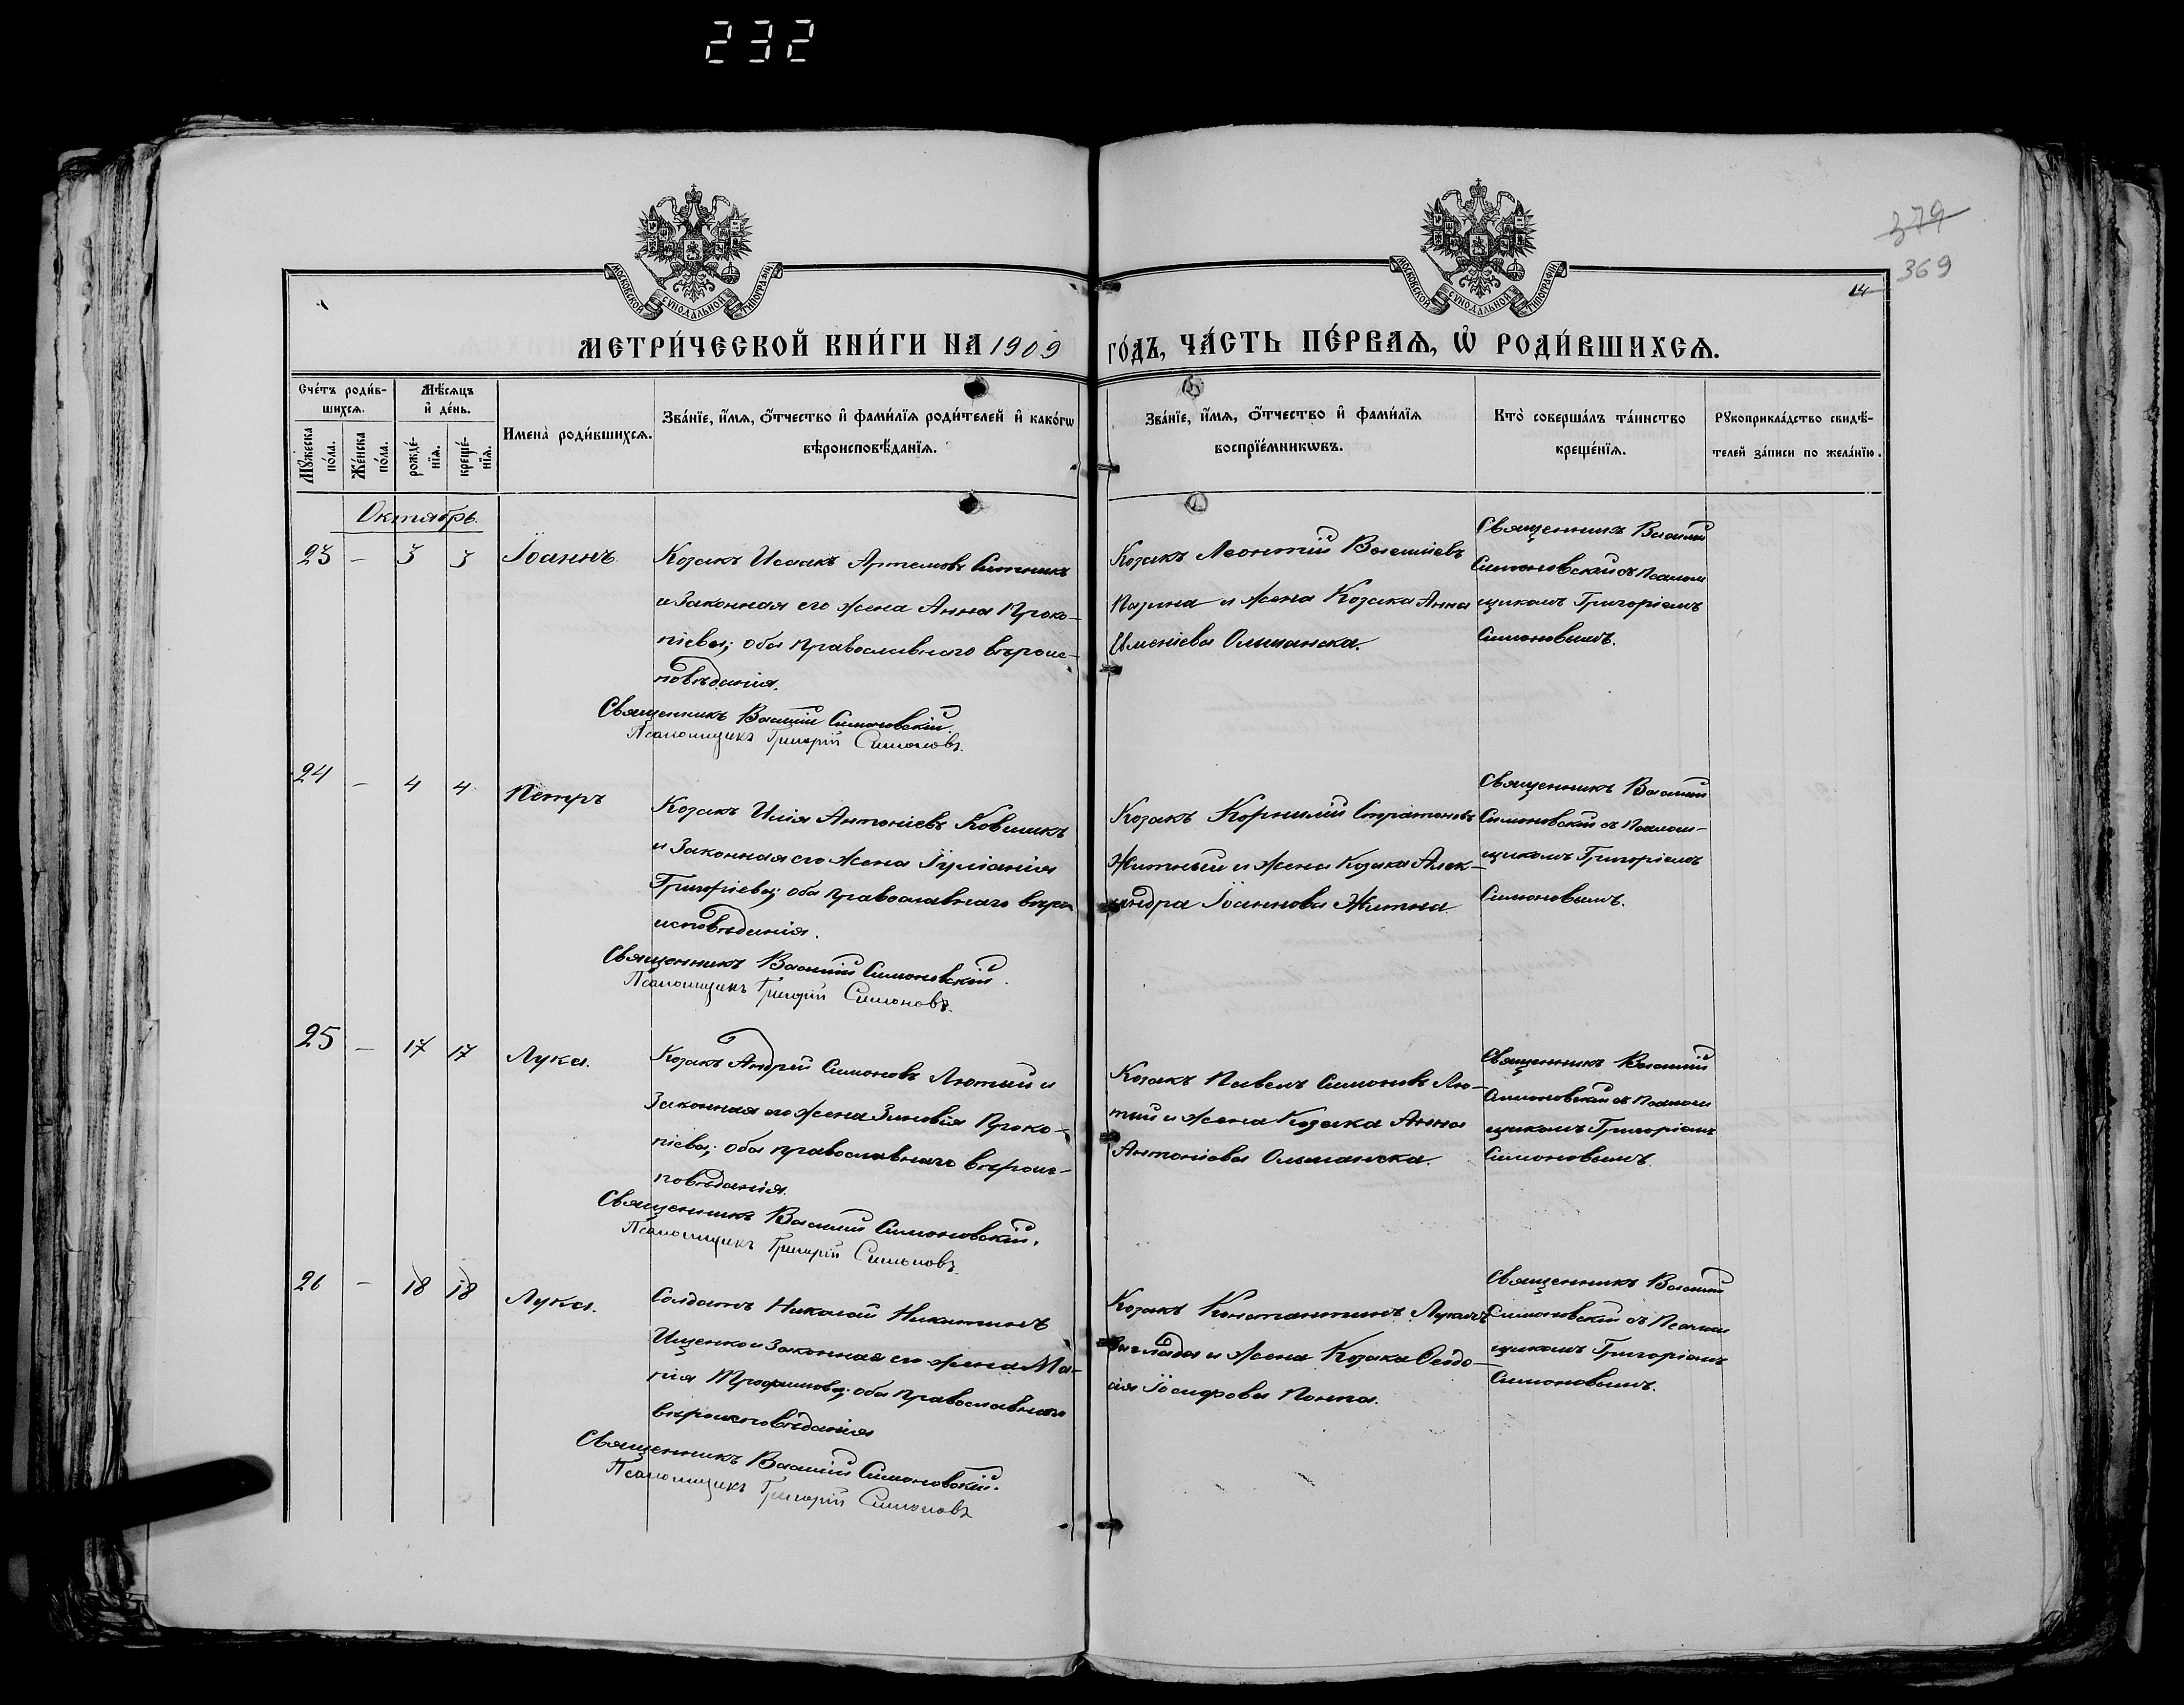 232
379
369
14
МОСКОВСКОЙ СѴНОДАЛЬНОЙ ТИПОГРАФІИ
МОСКОВСКОЙ СѴНОДАЛЬНОЙ ТИПОГРАФІИ
МЕТРИ́ЧЕСКОЙ КНИ́ГИ НА 1909 ГО́ДЪ, ЧА́СТЬ ПЕ́РВАѦ, Ѡ҆ РОДИ́ВШИХСѦ.
Сче́тъ роди́в-
шихсѧ.
Мꙋ́жеска по́ла.
Же́нска по́ла.
Мѣ́сѧцъ
и҆ де́нь.
рожде́-
нїѧ.
креще́-
нїѧ.
Имена̀ роди́вшихсѧ.
Зва́нїе, и҆́мѧ, ѻ҆́тчество и҆ фами́лїѧ роди́телей и҆ како́гѡ
вѣроисповѣ́данїѧ.
Зва́нїе, и҆́мѧ, ѻ҆́тчество и҆ фами́лїѧ
воспрїе́мникѡвъ.
Кто̀ соверша́лъ та́инство
креще́нїѧ.
Рꙋкоприкла́дство свидѣ́-
телей за́писи по жела́нїю.
Октябрь.
23 — 3 3 Іоаннъ.
Козакъ Исаакъ Артемовъ Ситникъ
и законная его жена Анна Проко-
піева; оба православнаго вѣроис-
повѣданія.
Священникъ Василій Симоновскій.
Псаломщикъ Григорій Симоновъ.
Козакъ Леонтій Василіевъ
и жена Козака Анна
Ольшанска.
Священникъ Василій
Симоновскій съ Псалом
щикомъ Григоріемъ
Симоновымъ.
24 — 4 4 Петръ
Козакъ Илія Антоніевъ Ковшикъ
и законная его жена Іуліанія
Григоріева; оба православнаго вѣро
исповѣданія.
Священникъ Василій Симоновскій.
Псаломщикъ Григорій Симоновъ.
Козакъ Корнилій Стратоновъ
Житный и жена Козака Алек-
сандра Іоаннова Житна.
Священникъ Василій
Симоновскій съ Псалом-
щикомъ Григоріемъ
Симоновымъ.
25 — 17 17 Лука.
Козакъ Андрей Симоновъ Лютый и
законная его жена Зиновія Проко-
піева; оба православнаго вѣроис-
повѣданія.
Священникъ Василій Симоновскій.
Псаломщикъ Григорій Симоновъ.
Козакъ Павелъ Симоновъ Лю-
тый и жена Козака Анна
Антоніева Ольшанска.
Священникъ Василій
Симоновскій съ Псалом
щикомъ Григоріемъ
Симоновымъ.
26 — 18 18 Лука.
Солдатъ Николай Никитинъ
Ищенко и законная его жена Ма-
рія Трофимова; оба православнаго
вѣроисповѣданія
Священникъ Василій Симоновскій.
Псаломщикъ Григорій Симоновъ
Козакъ Константинъ Лукичъ
и жена Козака Ѳеодо-
сія Іосифова Попка.
Священникъ Василій
Симоновскій съ Псалом
щикомъ Григоріемъ
Симоновымъ.